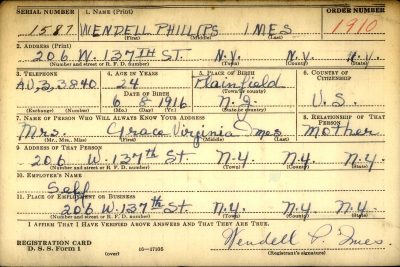 SERIAL NUMBER 1. NAME (Print) ORDER NUMBER
1587 WENDELL PHILLIPS IMES 1910
(First) (Middle) (Last)
2. ADDRESS (Print)
206 W. 137TH ST. N.Y. N.Y. N.Y.
(Number and street or R. F. D. number) (Town) (County) (State)
3. TELEPHONE 4. AGE IN YEARS 5. PLACE OF BIRTH 6. COUNTRY OF CITIZENSHIP
AU. 3 3840 24 Plainfield
DATE OF BIRTH (Town or county)
6 8 1916 N.J. U.S.
(Exchange) (Number) (Mo.) (Day) (Yr.) (State or country)
7. NAME OF PERSON WHO WILL ALWAYS KNOW YOUR ADDRESS 8. RELATIONSHIP OF THAT PERSON
Mrs. Grace Virginia Imes Mother
(Mr., Mrs., Miss) (First) (Middle) (Last)
9. ADDRESS OF THAT PERSON
206 W. 137th St. N.Y. N.Y. N.Y.
(Number and street or R. F. D. number) (Town) (County) (State)
10. EMPLOYER'S NAME
Self
11. PLACE OF EMPLOYMENT OR BUSINESS
206 W. 137th St. N.Y. N.Y. N.Y.
(Number and street or R. F. D. number) (Town) (County) (State)
I AFFIRM THAT I HAVE VERIFIED ABOVE ANSWERS AND THAT THEY ARE TRUE.
REGISTRATION CARD
D. S. S. Form 1 (over) 16—17105 Wendell P. Imes
(Registrant's signature)